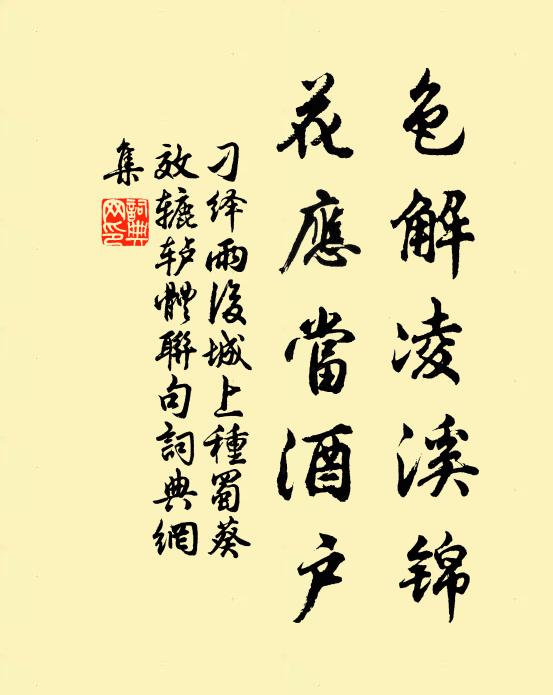 色解凌溪锦
花應當酒户
刁绎雨後城上種蜀葵
效辘轳體聯句詞典網
集
詞典網印